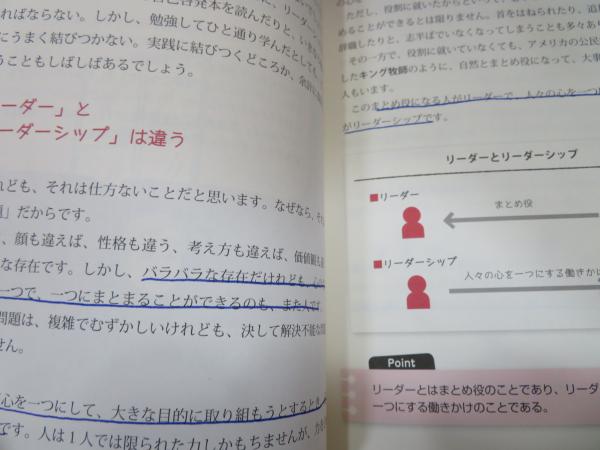 ればならない。しかし、勉強してひと通り学んだとしても
にうまく結びつかない。実践に結びつくどころか、余計に
うこともしばしばあるでしょう。
ーダー」と
ーダーシップ」は違う
れども、それは仕方ないことだと思います。なぜなら、
」だからです。
、顔も違えば、性格も違う、考え方も違えば、価値観も
な存在です。しかし、バラバラな存在だけれども、
一つで、一つにまとまることができるのも、また人で
問題は、複雑でむずかしいけれども、決して解決不能な
せん。
心を一つにして、大きな目的に取り組もうとすると
です。人は1人では限られた力しかもちませんが、
ただし、役割に就いたからといって
めることができるとは限りません。首をはねられたり、追
辞職したりと、志半ばでいなくなってしまうことも多々あり
その一方で、役割に就いていなくても、アメリカの公民
したキング牧師のように、自然とまとめ役になって、大事
人もいます。
このまとめ役になる人がリーダーで、人々の心を一つに
がリーダーシップです。
リーダーとリーダーシップ
■リーダー
まとめ役
■リーダーシップ
人々の心を一つにする働きかけ
Point
リーダーとはまとめ役のことであり、リーダ
一つにする働きかけのことである。